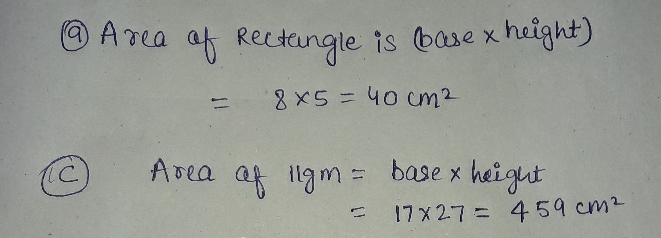 ⓐ Area of Rectangle is (base x height)
= 8x5 = 40 cm²
ⓒ Area of llgm = base x height
= 17x27 = 459 cm²